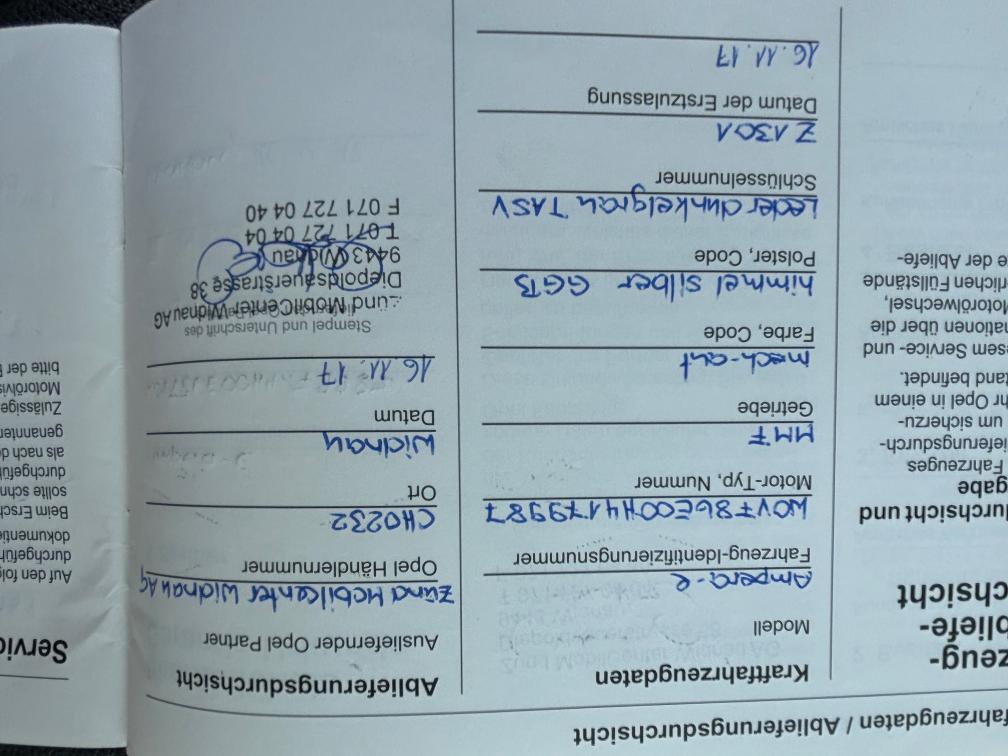 fahrzeugdaten / Ablieferungsdurchsicht
Kraftfahrzeugdaten
Modell
Ampera-e
Fahrzeug-Identifizierungsnummer
W0VF86E00H4179987
Motor-Typ, Nummer
MMF
Getriebe
mech-aut
Farbe, Code
himmel silber GGB
Polster, Code
Leder dunkelgrau TASV
Schlüsselnummer
Z1301
Datum der Erstzulassung
16.11.17
Ablieferungsdurchsicht
Ausliefernder Opel Partner
Zünd Mobilcenter Widnau AG
Opel Händlernummer
CH0232
Ort
Widnau
Datum
16.11.17
Stempel und Unterschrift des
Zünd MobilCenter Widnau AG
Diepoldsauerstrasse 38
9443 Widnau
T 071 727 04 04
F 071 727 04 40
zeug-
bliefe-
chsicht
urchsicht und
gabe
Fahrzeuges
lieferungsdurch-
um sicherzu-
hr Opel in einem
tand befindet.
sem Service- und
nationen über die
Motorölwechsel,
rlichen Füllstände
te der Abliefe-
Servic
Auf den folg
durchgeführ
dokumentie
Beim Ersch
sollte schn
durchgefüh
als nach de
genannten
Zulässige
Motorölvis
bitte der B